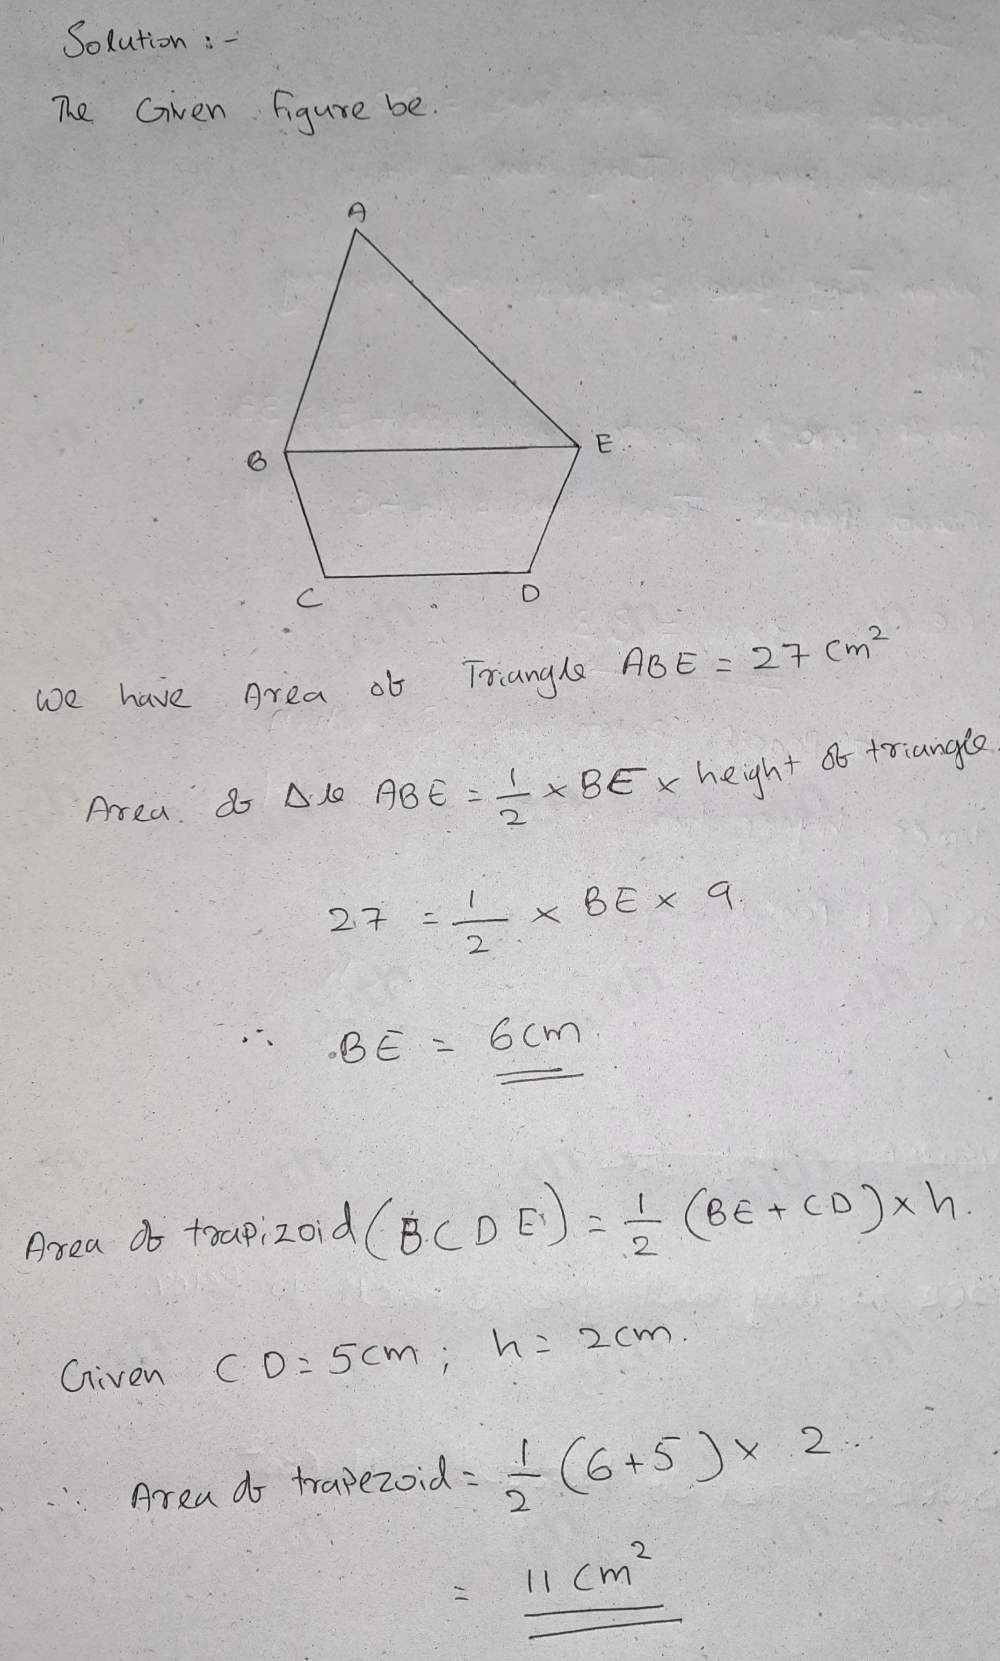 Solution :-
The Given figure be.
A
B
E
C
D
We have Area of Triangle ABE = 27 cm²
Area of Δle ABE = 1/2 × BE × height of triangle.
27 = 1/2 × BE × 9.
∴ BE = 6cm.
Area of trapizoid (BCDE) = 1/2 (BE + CD) × h.
Given CD = 5cm ; h = 2cm.
∴ Area of trapezoid = 1/2 (6+5) × 2
= 11 cm²